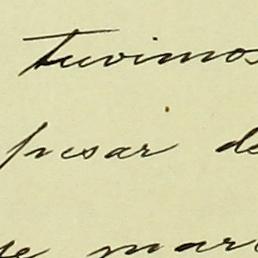 tuvimos
pesar de
se mar